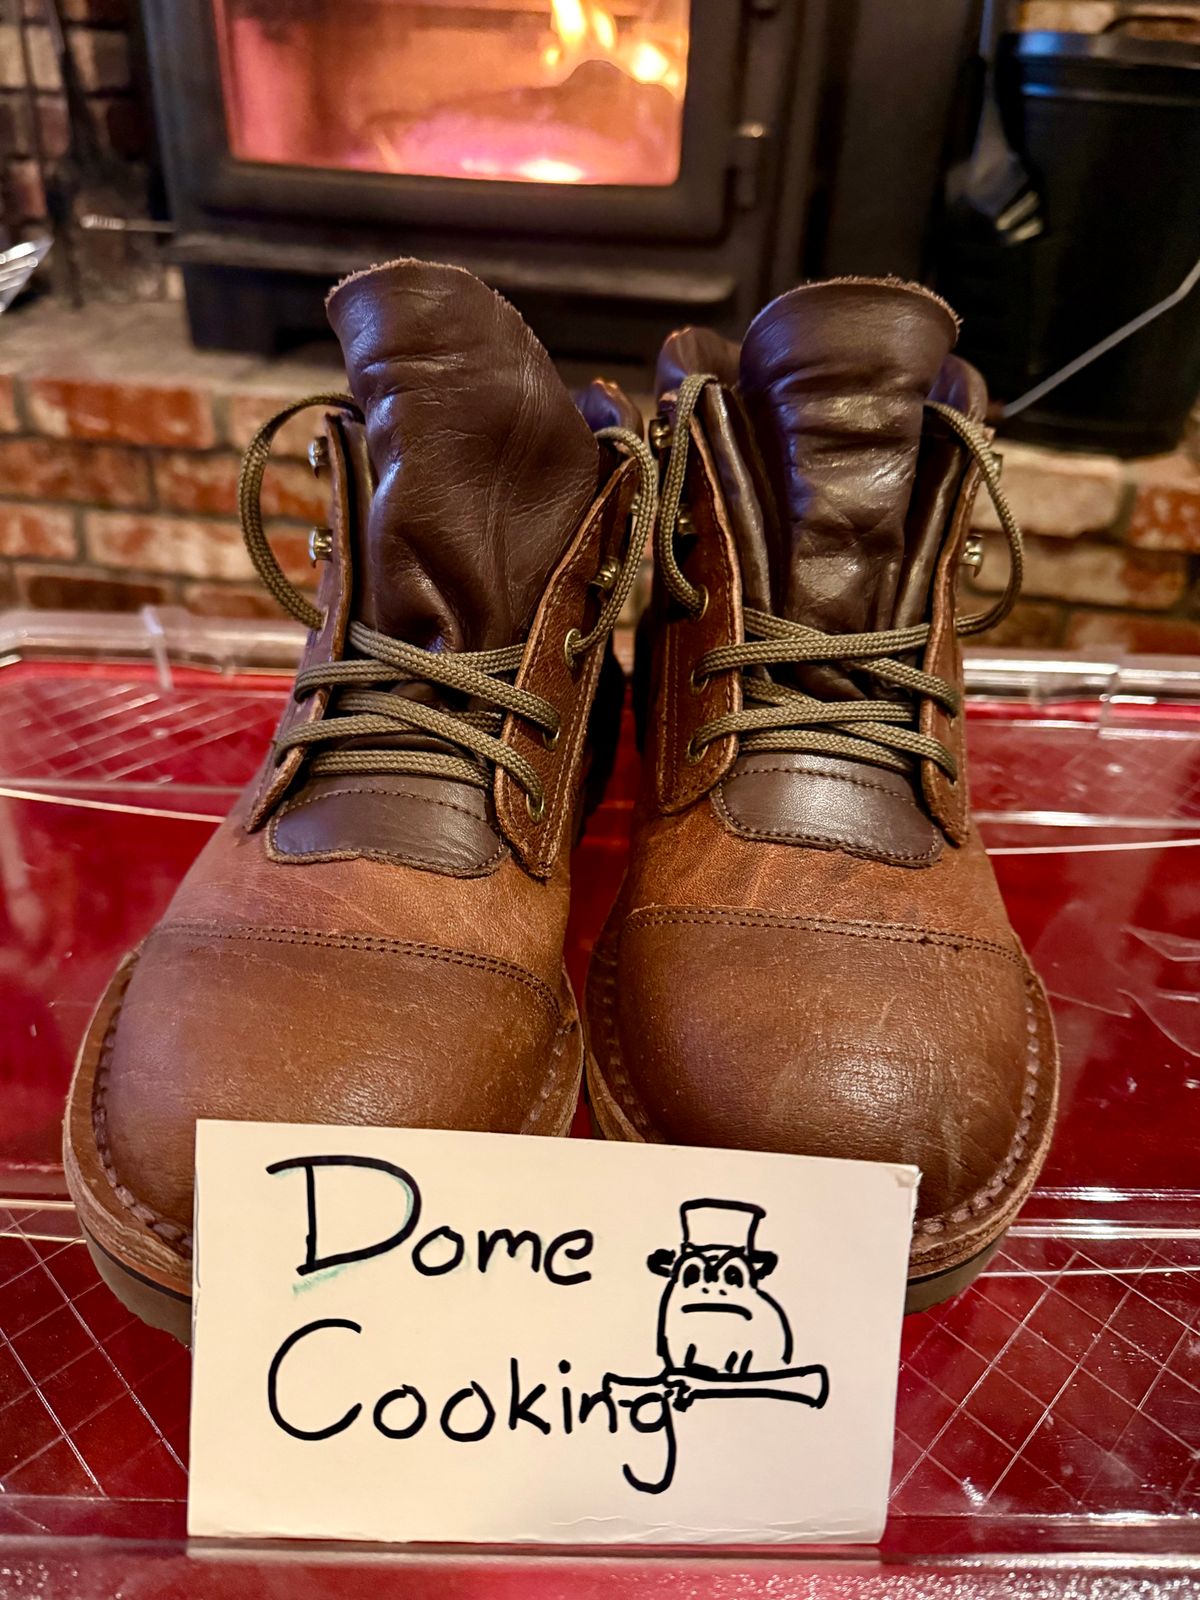 Dome
Cooking